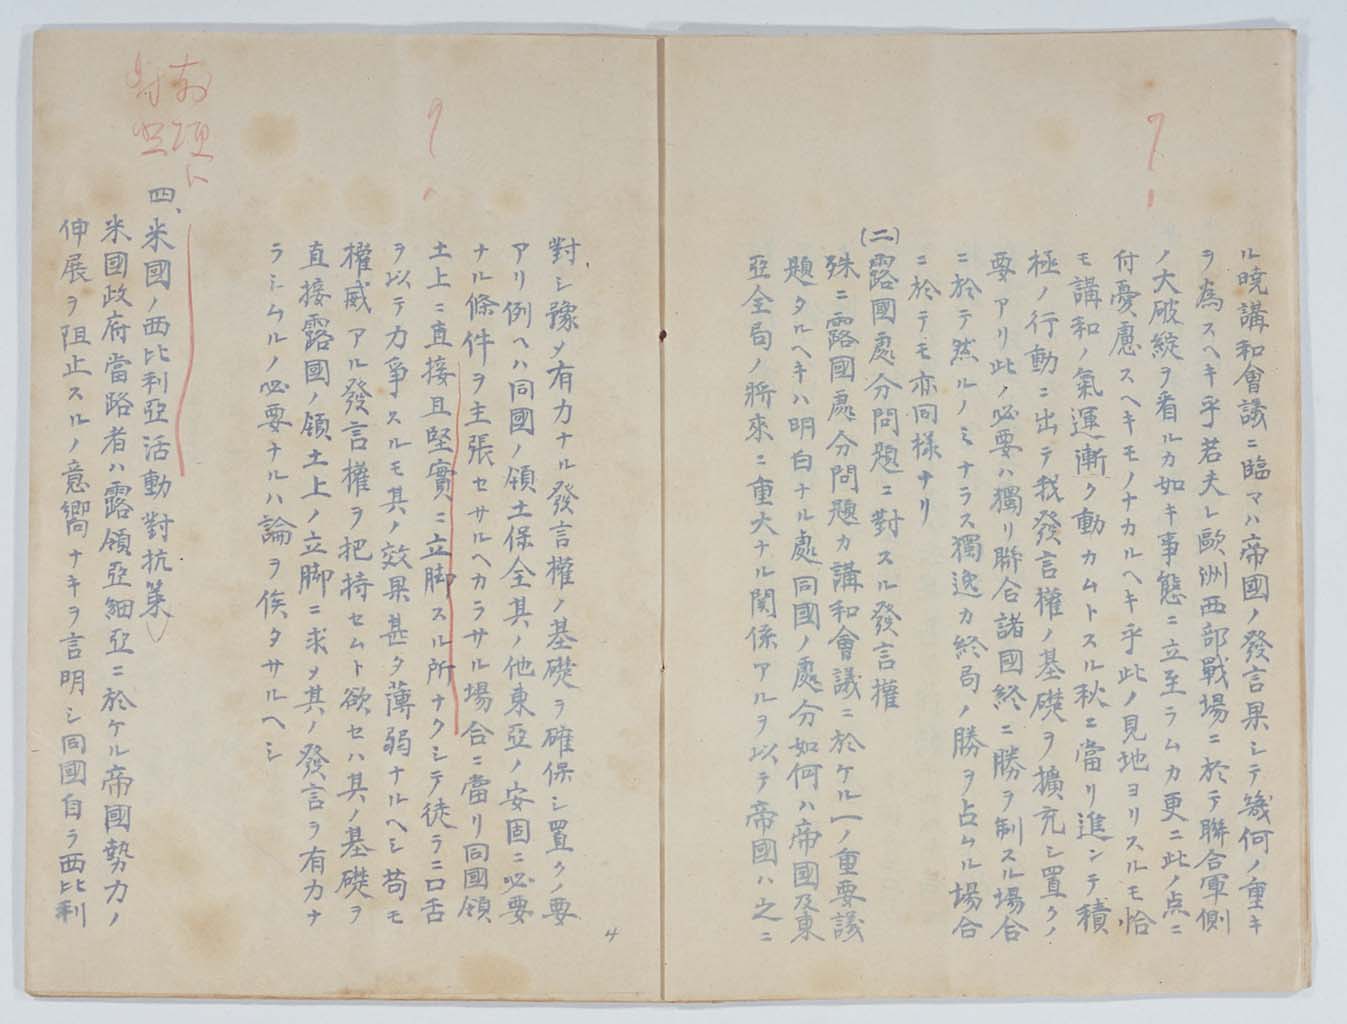 ル曉講和會議ニ臨マハ帝國ノ發言果シテ幾何ノ重キ
ヲ為スヘキ乎若夫レ歐洲西部戰場ニ於テ聯合軍側
ノ大破綻ヲ看ルカ如キ事態ニ立至ラムカ更ニ此ノ点ニ
付憂慮スヘキモノナカルヘキ乎此ノ見地ヨリスルモ恰
モ講和ノ氣運漸ク動カムトスル秋ニ當リ進ンテ積
極ノ行動ニ出テ我發言權ノ基礎ヲ擴充シ置クノ
要アリ此ノ必要ハ獨リ聯合諸國終ニ勝ヲ制スル場合
ニ於テ然ルノミナラス獨逸カ終局ノ勝ヲ占ムル場合
ニ於テモ亦同様ナリ
(二)露國處分問題ニ對スル發言權
殊ニ露國處分問題カ講和會議ニ於ケル一ノ重要議
題タルヘキハ明白ナル處同國ノ處分如何ハ帝國及東
亞全局ノ將來ニ重大ナル関係アルヲ以テ帝國ハ之ニ
對シ豫メ有力ナル發言權ノ基礎ヲ確保シ置クノ要
アリ例ヘハ同國ノ領土保全其ノ他東亞ノ安固ニ必要
ナル條件ヲ主張セサルヘカラサル場合ニ當リ同國領
土上ニ直接且堅實ニ立脚スル所ナクシテ徒ラニ口舌
ヲ以テ力爭スルモ其ノ效果甚タ薄弱ナルヘシ苟モ
權威アル發言權ヲ把持セムト欲セハ其ノ基礎ヲ
直接露國ノ領土上ノ立脚ニ求メ其ノ發言ヲ有力ナ
ラシムルノ必要ナルハ論ヲ俟タサルヘシ
4
前項ニ
四、米國ノ西比利亞活動對抗策
米國政府當路者ハ露領亞細亞ニ於ケル帝國勢力ノ
伸展ヲ阻止スルノ意嚮ナキヲ言明シ同國自ラ西比利